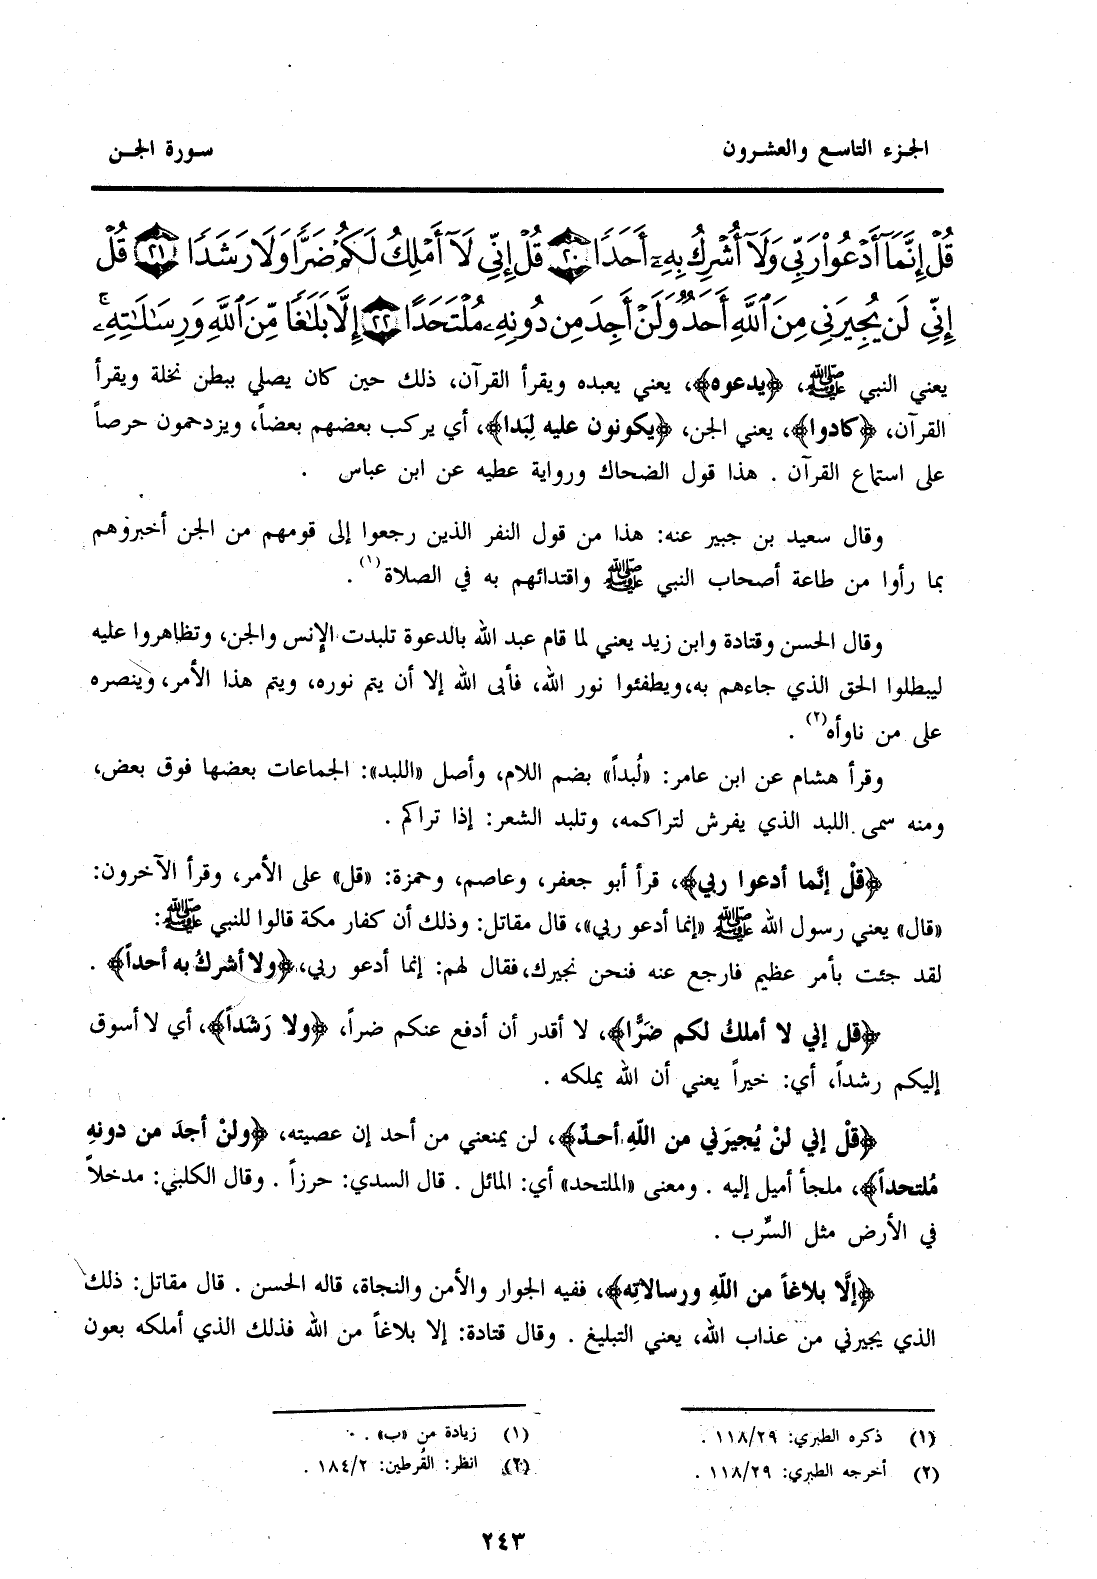 الجزء التاسع والعشرون
سورة الجن
قُلْ إِنَّمَآ أَدْعُوا۟ رَبِّى وَلَآ أُشْرِكُ بِهِۦٓ أَحَدًا ٢٠ قُلْ إِنِّى لَآ أَمْلِكُ لَكُمْ ضَرًّا وَلَا رَشَدًا ٢١ قُلْ
إِنِّى لَن يُجِيرَنِى مِنَ ٱللَّهِ أَحَدٌ وَلَنْ أَجِدَ مِن دُونِهِۦ مُلْتَحَدًا ٢٢ إِلَّا بَلَٰغًا مِّنَ ٱللَّهِ وَرِسَٰلَٰتِهِۦ ۚ
يعني النبي ﷺ، ﴿يدعوه﴾، يعني يعبده ويقرأ القرآن، ذلك حين كان يصلي ببطن نخلة ويقرأ
القرآن، ﴿كادوا﴾، يعني الجن، ﴿يكونون عليه لِبَدا﴾، أي يركب بعضهم بعضاً، ويزدحمون حرصاً
على استماع القرآن . هذا قول الضحاك ورواية عطيه عن ابن عباس .
وقال سعيد بن جبير عنه: هذا من قول النفر الذين رجعوا إلى قومهم من الجن أخبروهم
بما رأوا من طاعة أصحاب النبي ﷺ واقتدائهم به في الصلاة(١) .
وقال الحسن وقتادة وابن زيد يعني لما قام عبد الله بالدعوة تلبدت الإنس والجن، وتظاهروا عليه
ليبطلوا الحق الذي جاءهم به، ويطفئوا نور الله، فأبى الله إلا أن يتم نوره، ويتم هذا الأمر، وينصره
على من ناوأه(٢) .
وقرأ هشام عن ابن عامر: «لُبداً» بضم اللام، وأصل «اللبد»: الجماعات بعضها فوق بعض،
ومنه سمى اللبد الذي يفرش لتراكمه، وتلبد الشعر: إذا تراكم .
﴿قلْ إنَّما أدعوا ربي﴾، قرأ أبو جعفر، وعاصم، وحمزة: «قل» على الأمر، وقرأ الآخرون:
«قال» يعني رسول الله ﷺ «إنما أدعو ربي»، قال مقاتل: وذلك أن كفار مكة قالوا للنبي ﷺ:
لقد جئت بأمر عظيم فارجع عنه فنحن نجيرك، فقال لهم: إنما أدعو ربي، ﴿ولا أشركُ به أحداً﴾ .
﴿قل إني لا أملكُ لكم ضَرًّا﴾، لا أقدر أن أدفع عنكم ضراً، ﴿ولا رَشَداً﴾، أي لا أسوق
إليكم رشداً، أي: خيراً يعني أن الله يملكه .
﴿قلْ إني لنْ يُجيرَني من اللّهِ أحدٌ﴾، لن يمنعني من أحد إن عصيته، ﴿ولنْ أجدَ من دونهِ
مُلتحداً﴾، ملجأ أميل إليه . ومعنى «الملتحد» أي: المائل . قال السدي: حرزاً . وقال الكلبي: مدخلاً
في الأرض مثل السِّرب .
﴿إلَّا بلاغاً من اللّهِ ورسالاتِه﴾، ففيه الجوار والأمن والنجاة، قاله الحسن . قال مقاتل: ذلك
الذي يجيرني من عذاب الله، يعني التبليغ . وقال قتادة: إلا بلاغاً من الله فذلك الذي أملكه بعون
(١) ذكره الطبري: ١١٨/٢٩ .
(٢) أخرجه الطبري: ١١٨/٢٩ .
(١) زيادة من «ب» .
(٢) انظر: القُرطين: ١٨٤/٢ .
٢٤٣